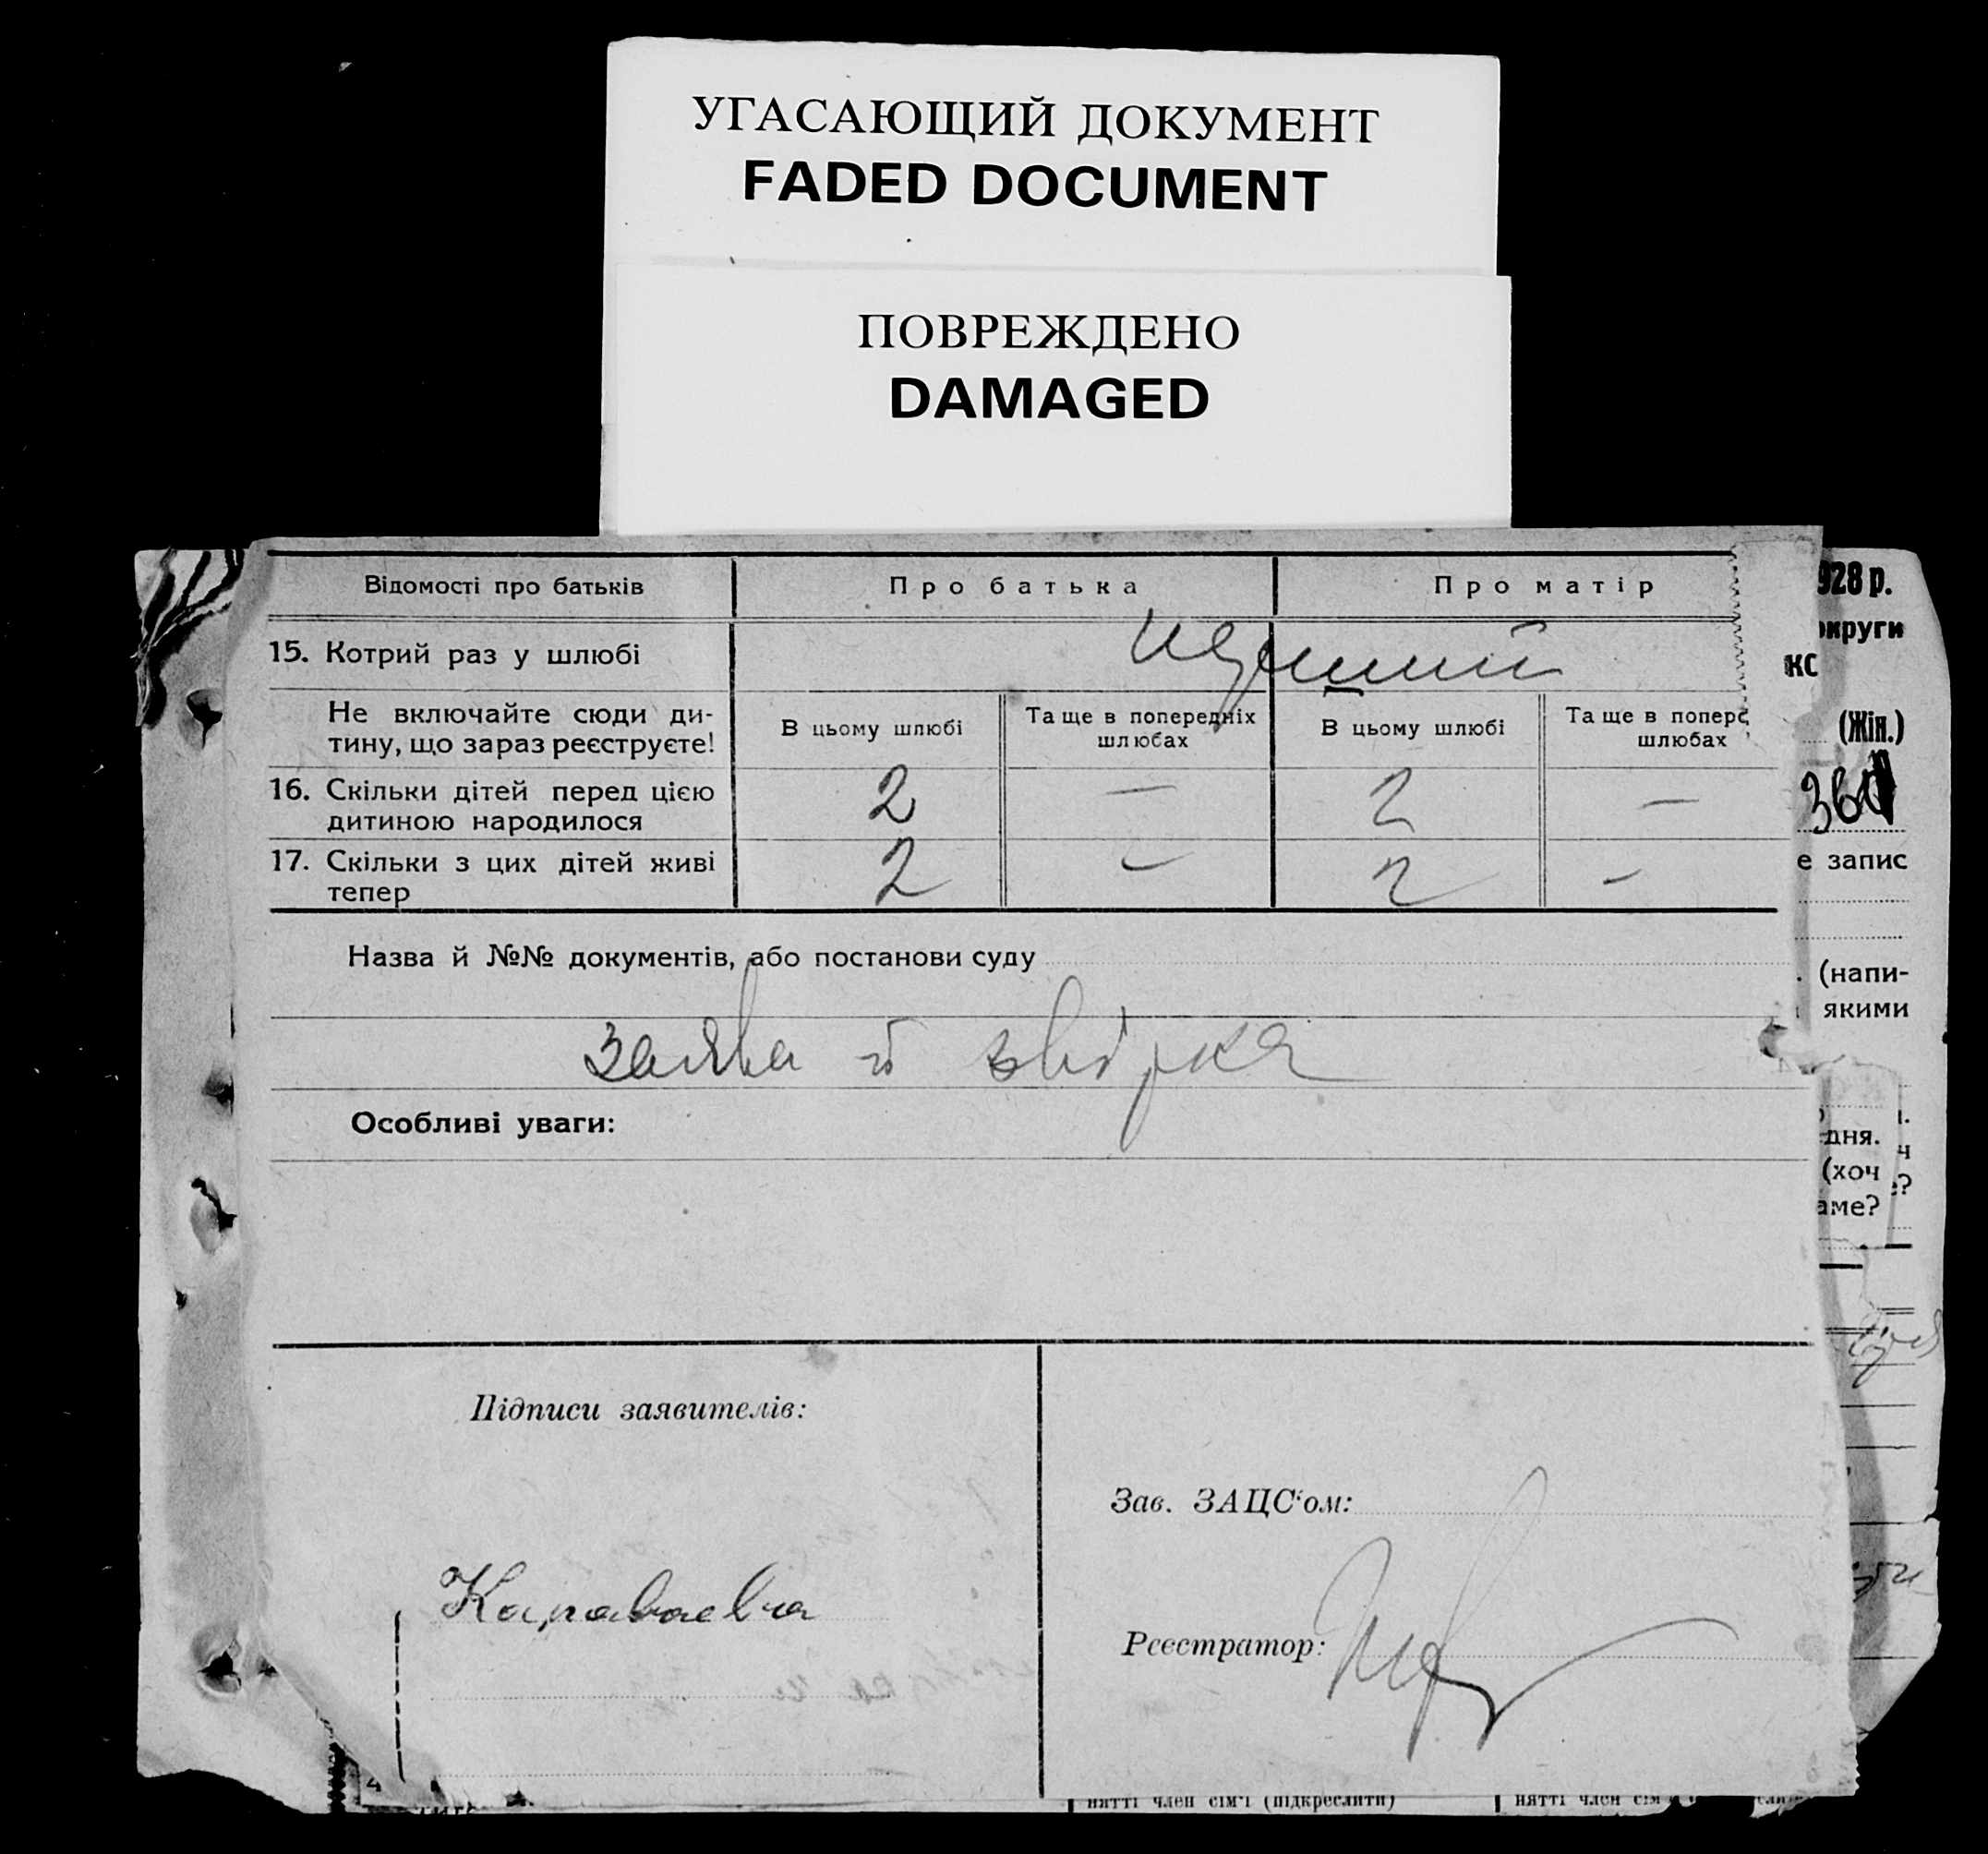 УГАСАЮЩИЙ ДОКУМЕНТ
FADED DOCUMENT
ПОВРЕЖДЕНО
DAMAGED
Відомості про батьків Про батька Про матір
15. Котрий раз у шлюбі
Не включайте сюди ди-
тину, що зараз реєструєте!
В цьому шлюбі
Та ще в попередніх
шлюбах
В цьому шлюбі
Та ще в попере
шлюбах
16. Скільки дітей перед цією
дитиною народилося
2 — 2 —
17. Скільки з цих дітей живі
тепер
2 — 2 —
Назва й №№ документів, або постанови суду
заява й звірка
Особливі уваги:
Підписи заявителів:
Караваевка
Зав. ЗАЦС'ом:
Реєстратор:
928 р.
округи
кс
(Жін.)
е запис
(напи-
якими
дня.
(хоч
аме?
нятті член сім'ї (підкреслити)
нятті член сім